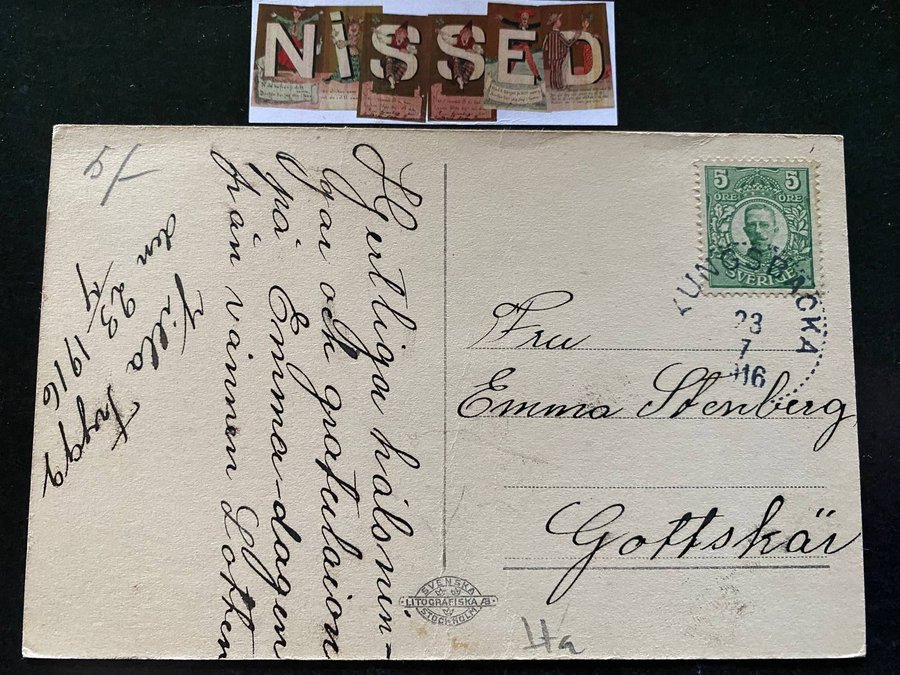 NiSSED
5/-
Hjertliga hälsnin-
gar och gratulaion
på Emma-dagen
från vännen Lotten
Villa Trygg
den 23/7 1916
5 5
ÖRE ÖRE
SVERIGE
KUNGSBACKA
23
7
16
Fru
Emma Stenberg
Gottskär
SVENSKA
LITOGRAFISKA AB
STOCKHOLM